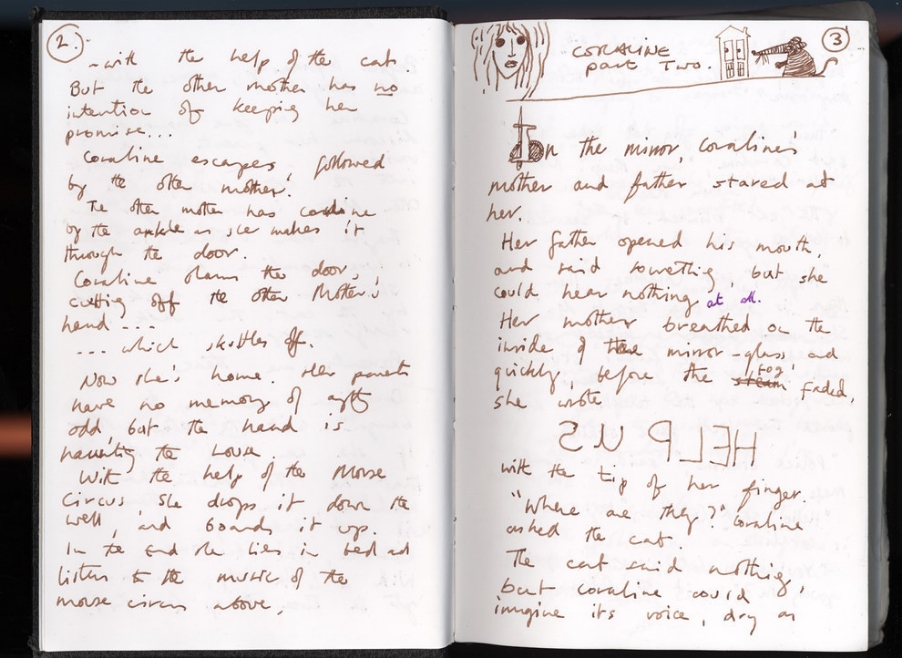 2.
- with the help of the cat.
But the other mother has no
intention of keeping her
promise...
Coraline escapes, followed
by the other mother.
The other mother has coraline
by the ankle as she makes it
through the door.
Coraline slams the door,
cutting off the other Mother's
hand ---
... which skuttles off.
Now she's home. Her parents
have no memory of
odd, but the hand is
haunting the house.
With the help of the Mouse
Circus, she drops it down the
well, and boards it up.
In the end she lies in bed and
listens to the music of the
mouse circus above,
3
CORALINE
part Two.
In the mirror, Coraline's
mother and father stared at
her.
Her father opened his mouth,
and said something, but she
could hear nothing at all.
Her mother breathed on the
inside of the mirror-glass and
quickly, before the steam fog faded,
she wrote
HELP US
with the tip of her finger.
"Where are they?" Coraline
asked the cat.
The cat said nothing,
but coraline could
imagine its voice, dry as